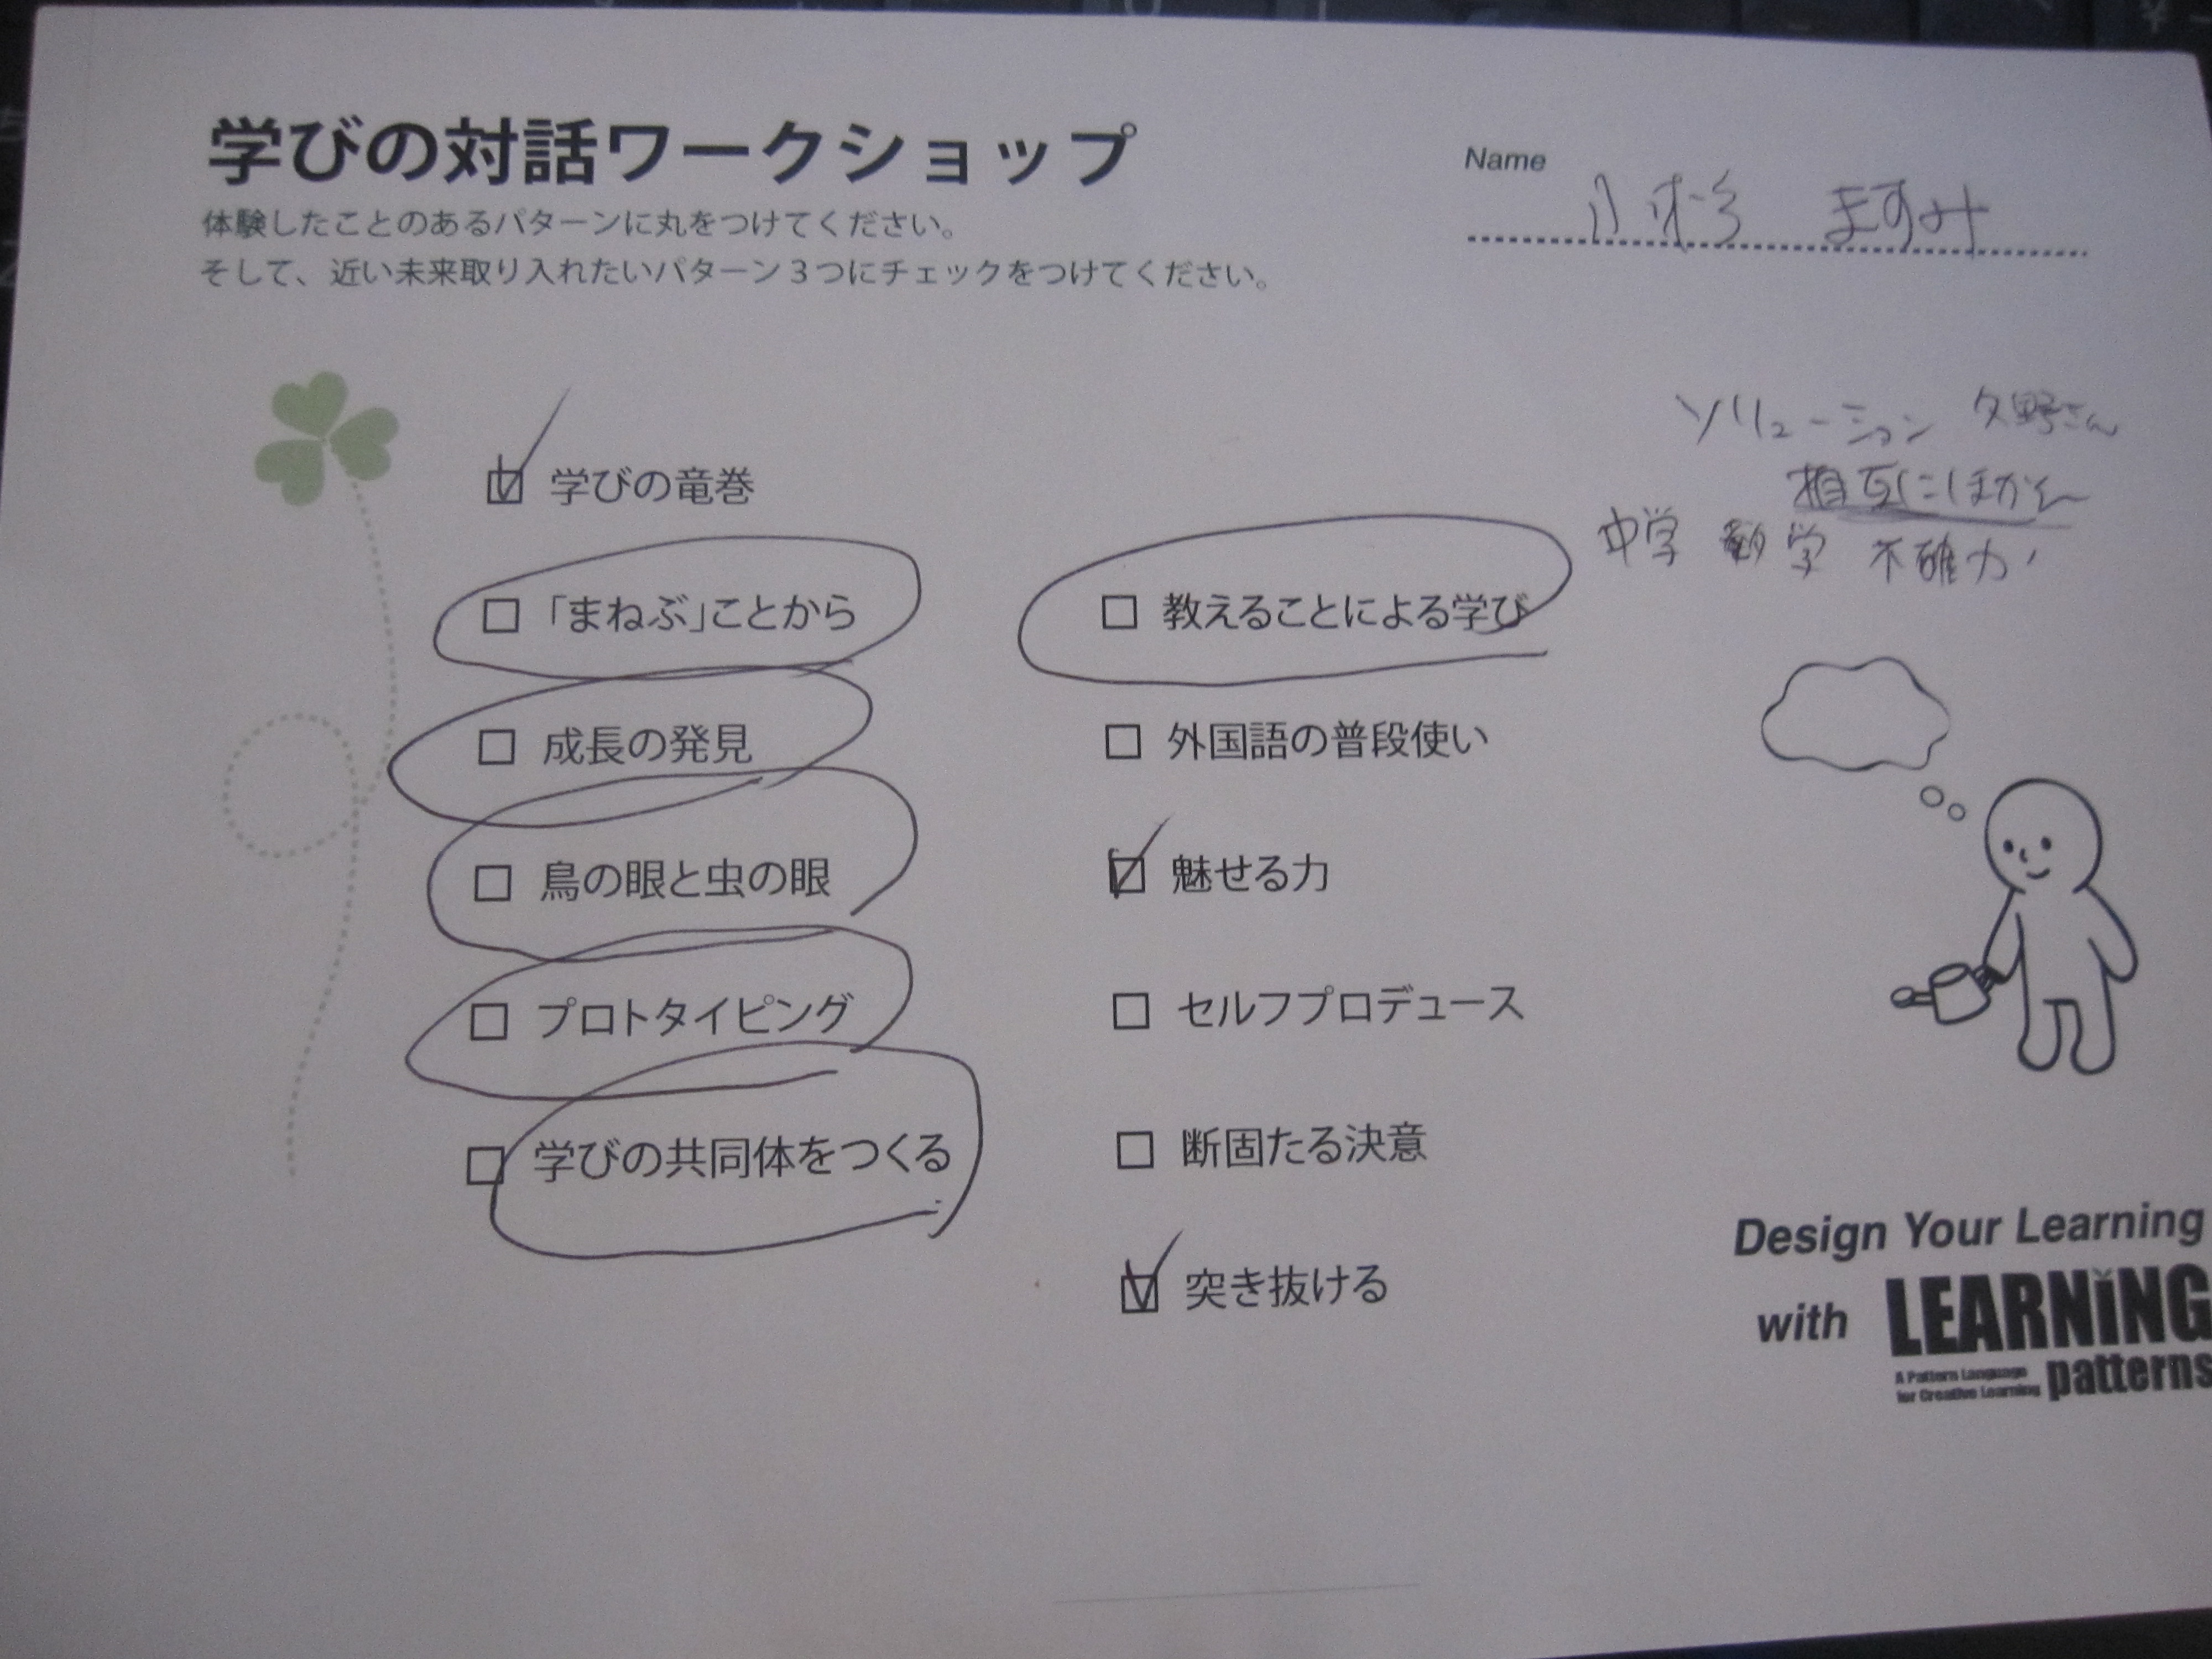 学びの対話ワークショップ
体験したことのあるパターンに丸をつけてください。
そして、近い未来取り入れたいパターン3つにチェックをつけてください。
Name
学びの竜巻
「まねぶ」ことから
成長の発見
鳥の眼と虫の眼
プロトタイピング
学びの共同体をつくる
教えることによる学び
外国語の普段使い
魅せる力
セルフプロデュース
断固たる決意
突き抜ける
ソリューション
相互に
中学
Design Your Learning
with LEARNING patterns
A Pattern Language
for Creative Learning